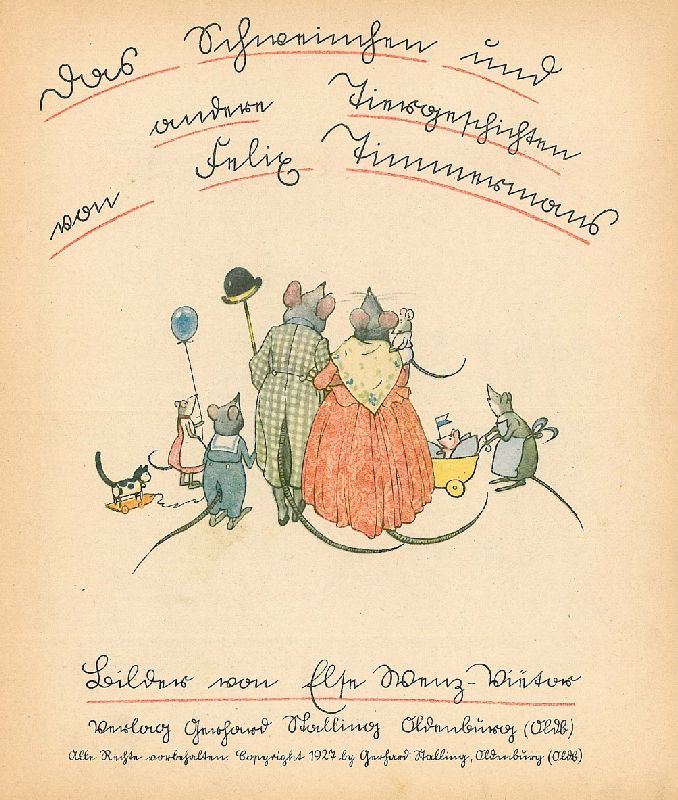 Das Schweinchen und
andere Tiergeschichten
von Felix Timmermans
Bilder von Else Wenz-Viëtor
Verlag Gerhard Stalling Oldenburg (Oldb)
Alle Rechte vorbehalten. Copyright 1927 by Gerhard Stalling, Oldenburg (Oldb)